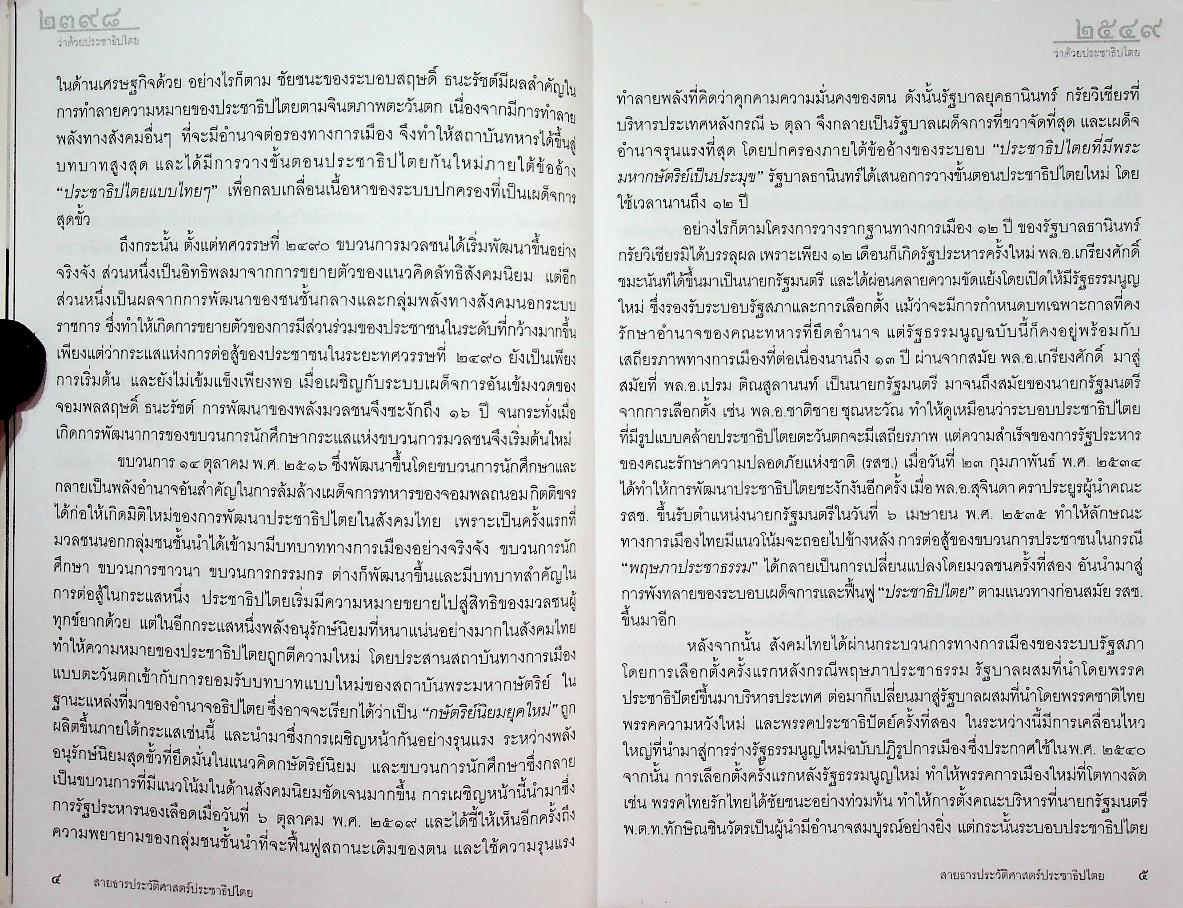 ๒๓๙๘
ว่าด้วยประชาธิปไตย
ในด้านเศรษฐกิจด้วย อย่างไรก็ตาม ชัยชนะของระบอบสฤษดิ์ ธนะรัชต์มีผลสำคัญใน
การทำลายความหมายของประชาธิปไตยตามจินตภาพตะวันตก เนื่องจากมีการทำลาย
พลังทางสังคมอื่นๆ ที่จะมีอำนาจต่อรองทางการเมือง จึงทำให้สถาบันทหารได้ขึ้นสู่
บทบาทสูงสุด และได้มีการวางขั้นตอนประชาธิปไตยกันใหม่ภายใต้ข้ออ้าง
“ประชาธิปไตยแบบไทยๆ” เพื่อกลบเกลื่อนเนื้อหาของระบบปกครองที่เป็นเผด็จการ
สุดขั้ว
ถึงกระนั้น ตั้งแต่ทศวรรษที่ ๒๔๙๐ ขบวนการมวลชนได้เริ่มพัฒนาขึ้นอย่าง
จริงจัง ส่วนหนึ่งเป็นอิทธิพลมาจากการขยายตัวของแนวคิดลัทธิสังคมนิยม แต่อีก
ส่วนหนึ่งเป็นผลจากการพัฒนาของชนชั้นกลางและกลุ่มพลังทางสังคมนอกระบบ
ราชการ ซึ่งทำให้เกิดการขยายตัวของการมีส่วนร่วมของประชาชนในระดับที่กว้างมากขึ้น
เพียงแต่ว่ากระแสแห่งการต่อสู้ของประชาชนในระยะทศวรรษที่ ๒๔๙๐ ยังเป็นเพียง
การเริ่มต้น และยังไม่เข้มแข็งเพียงพอ เมื่อเผชิญกับระบบเผด็จการอันเข้มงวดของ
จอมพลสฤษดิ์ ธนะรัชต์ การพัฒนาของพลังมวลชนจึงชะงักถึง ๑๖ ปี จนกระทั่งเมื่อ
เกิดการพัฒนาการของขบวนการนักศึกษากระแสแห่งขบวนการมวลชนจึงเริ่มต้นใหม่
ขบวนการ ๑๔ ตุลาคม พ.ศ. ๒๕๑๖ ซึ่งพัฒนาขึ้นโดยขบวนการนักศึกษาและ
กลายเป็นพลังอำนาจอันสำคัญในการล้มล้างเผด็จการทหารของจอมพลถนอม กิตติขจร
ได้ก่อให้เกิดมิติใหม่ของการพัฒนาประชาธิปไตยในสังคมไทย เพราะเป็นครั้งแรกที่
มวลชนนอกกลุ่มชนชั้นนำได้เข้ามามีบทบาททางการเมืองอย่างจริงจัง ขบวนการนัก
ศึกษา ขบวนการชาวนา ขบวนการกรรมกร ต่างก็พัฒนาขึ้นและมีบทบาทสำคัญใน
การต่อสู้ในกระแสหนึ่ง ประชาธิปไตยเริ่มมีความหมายขยายไปสู่สิทธิของมวลชนผู้
ทุกข์ยากด้วย แต่ในอีกกระแสหนึ่งพลังอนุรักษ์นิยมที่หนาแน่นอย่างมากในสังคมไทย
ทำให้ความหมายของประชาธิปไตยถูกตีความใหม่ โดยประสานสถาบันทางการเมือง
แบบตะวันตกเข้ากับการยอมรับบทบาทแบบใหม่ของสถาบันพระมหากษัตริย์ ใน
ฐานะแหล่งที่มาของอำนาจอธิปไตย ซึ่งอาจจะเรียกได้ว่าเป็น “กษัตริย์นิยมยุคใหม่” ถูก
ผลิตขึ้นภายใต้กระแสเช่นนี้ และนำมาซึ่งการเผชิญหน้ากันอย่างรุนแรง ระหว่างพลัง
อนุรักษ์นิยมสุดขั้วที่ยึดมั่นในแนวคิดกษัตริย์นิยม และขบวนการนักศึกษาซึ่งกลาย
เป็นขบวนการที่มีแนวโน้มในด้านสังคมนิยมชัดเจนมากขึ้น การเผชิญหน้านี้นำมาซึ่ง
การรัฐประหารนองเลือดเมื่อวันที่ ๖ ตุลาคม พ.ศ. ๒๕๑๙ และได้ชี้ให้เห็นอีกครั้งถึง
ความพยายามของกลุ่มชนชั้นนำที่จะฟื้นฟูสถานะเดิมของตน และใช้ความรุนแรง
๔ สายธารประวัติศาสตร์ประชาธิปไตย
๒๕๔๙
ว่าด้วยประชาธิปไตย
ทำลายพลังที่คิดว่าคุกคามความมั่นคงของตน ดังนั้นรัฐบาลยุคธานินทร์ กรัยวิเชียรที่
บริหารประเทศหลังกรณี ๖ ตุลา จึงกลายเป็นรัฐบาลเผด็จการที่ขวาจัดที่สุด และเผด็จ
อำนาจรุนแรงที่สุด โดยปกครองภายใต้ข้ออ้างของระบอบ “ประชาธิปไตยที่มีพระ
มหากษัตริย์เป็นประมุข” รัฐบาลธานินทร์ได้เสนอการวางขั้นตอนประชาธิปไตยใหม่ โดย
ใช้เวลานานถึง ๑๒ ปี
อย่างไรก็ตามโครงการวางรากฐานทางการเมือง ๑๒ ปี ของรัฐบาลธานินทร์
กรัยวิเชียรมิได้บรรลุผล เพราะเพียง ๑๒ เดือนก็เกิดรัฐประหารครั้งใหม่ พล.อ.เกรียงศักดิ์
ชมะนันท์ได้ขึ้นมาเป็นนายกรัฐมนตรี และได้ผ่อนคลายความขัดแย้งโดยเปิดให้มีรัฐธรรมนูญ
ใหม่ ซึ่งรองรับระบอบรัฐสภาและการเลือกตั้ง แม้ว่าจะมีการกำหนดบทเฉพาะกาลที่คง
รักษาอำนาจของคณะทหารที่ยึดอำนาจ แต่รัฐธรรมนูญฉบับนี้ก็คงอยู่พร้อมกับ
เสถียรภาพทางการเมืองที่ต่อเนื่องนานถึง ๑๓ ปี ผ่านจากสมัย พล.อ.เกรียงศักดิ์ มาสู่
สมัยที่ พล.อ.เปรม ติณสูลานนท์ เป็นนายกรัฐมนตรี มาจนถึงสมัยของนายกรัฐมนตรี
จากการเลือกตั้ง เช่น พล.อ.ชาติชาย ชุณหะวัณ ทำให้ดูเหมือนว่าระบอบประชาธิปไตย
ที่มีรูปแบบคล้ายประชาธิปไตยตะวันตกจะมีเสถียรภาพ แต่ความสำเร็จของการรัฐประหาร
ของคณะรักษาความปลอดภัยแห่งชาติ (รสช.) เมื่อวันที่ ๒๓ กุมภาพันธ์ พ.ศ. ๒๕๓๔
ได้ทำให้การพัฒนาประชาธิปไตยชะงักงันอีกครั้ง เมื่อ พล.อ.สุจินดา คราประยูรผู้นำคณะ
รสช. ขึ้นรับตำแหน่งนายกรัฐมนตรีในวันที่ ๖ เมษายน พ.ศ. ๒๕๓๕ ทำให้ลักษณะ
ทางการเมืองไทยมีแนวโน้มจะถอยไปข้างหลัง การต่อสู้ของขบวนการประชาชนในกรณี
“พฤษภาประชาธรรม” ได้กลายเป็นการเปลี่ยนแปลงโดยมวลชนครั้งที่สอง อันนำมาสู่
การพังทลายของระบอบเผด็จการและฟื้นฟู “ประชาธิปไตย” ตามแนวทางก่อนสมัย รสช.
ขึ้นมาอีก
หลังจากนั้น สังคมไทยได้ผ่านกระบวนการทางการเมืองของระบบรัฐสภา
โดยการเลือกตั้งครั้งแรกหลังกรณีพฤษภาประชาธรรม รัฐบาลผสมที่นำโดยพรรค
ประชาธิปัตย์ขึ้นมาบริหารประเทศ ต่อมาก็เปลี่ยนมาสู่รัฐบาลผสมที่นำโดยพรรคชาติไทย
พรรคความหวังใหม่ และพรรคประชาธิปัตย์ครั้งที่สอง ในระหว่างนี้มีการเคลื่อนไหว
ใหญ่ที่นำมาสู่การร่างรัฐธรรมนูญใหม่ฉบับปฏิรูปการเมือง ซึ่งประกาศใช้ในพ.ศ. ๒๕๔๐
จากนั้น การเลือกตั้งครั้งแรกหลังรัฐธรรมนูญใหม่ ทำให้พรรคการเมืองใหม่ที่โตทางลัด
เช่น พรรคไทยรักไทยได้ชัยชนะอย่างท่วมท้น ทำให้การตั้งคณะบริหารที่นายกรัฐมนตรี
พ.ต.ท.ทักษิณชินวัตรเป็นผู้นำมีอำนาจสมบูรณ์อย่างยิ่ง แต่กระนั้นระบอบประชาธิปไตย
สายธารประวัติศาสตร์ประชาธิปไตย ๕